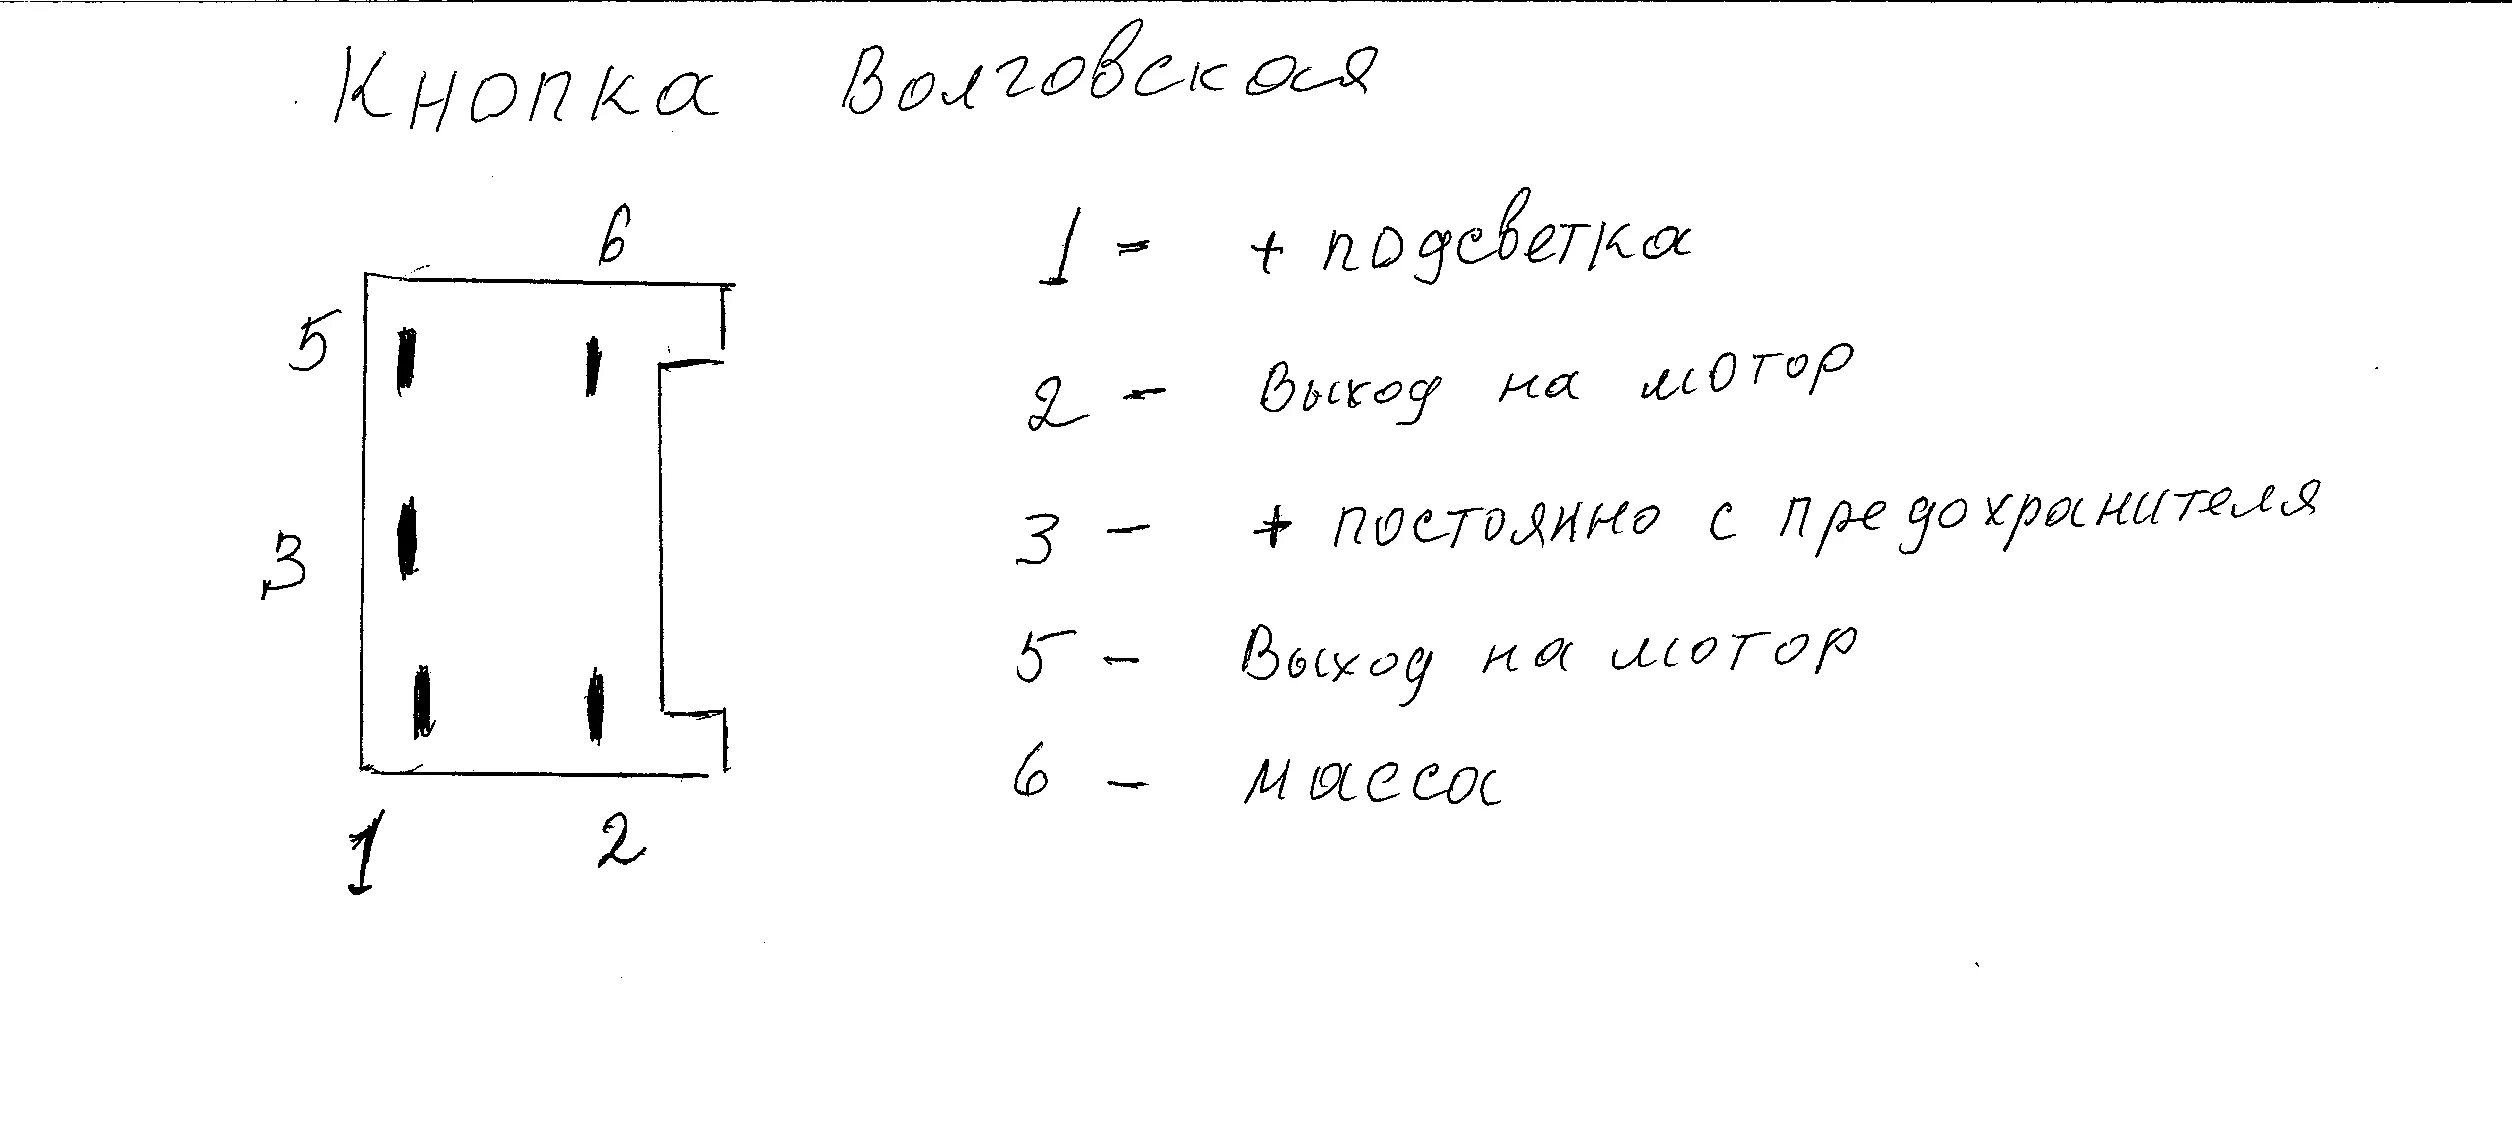 Кнопка Волговская
6
5
3
1 2
1 = + подсветка
2 - Выход на мотор
3 - + постоянно с предохранителя
5 - Выход на мотор
6 - масса